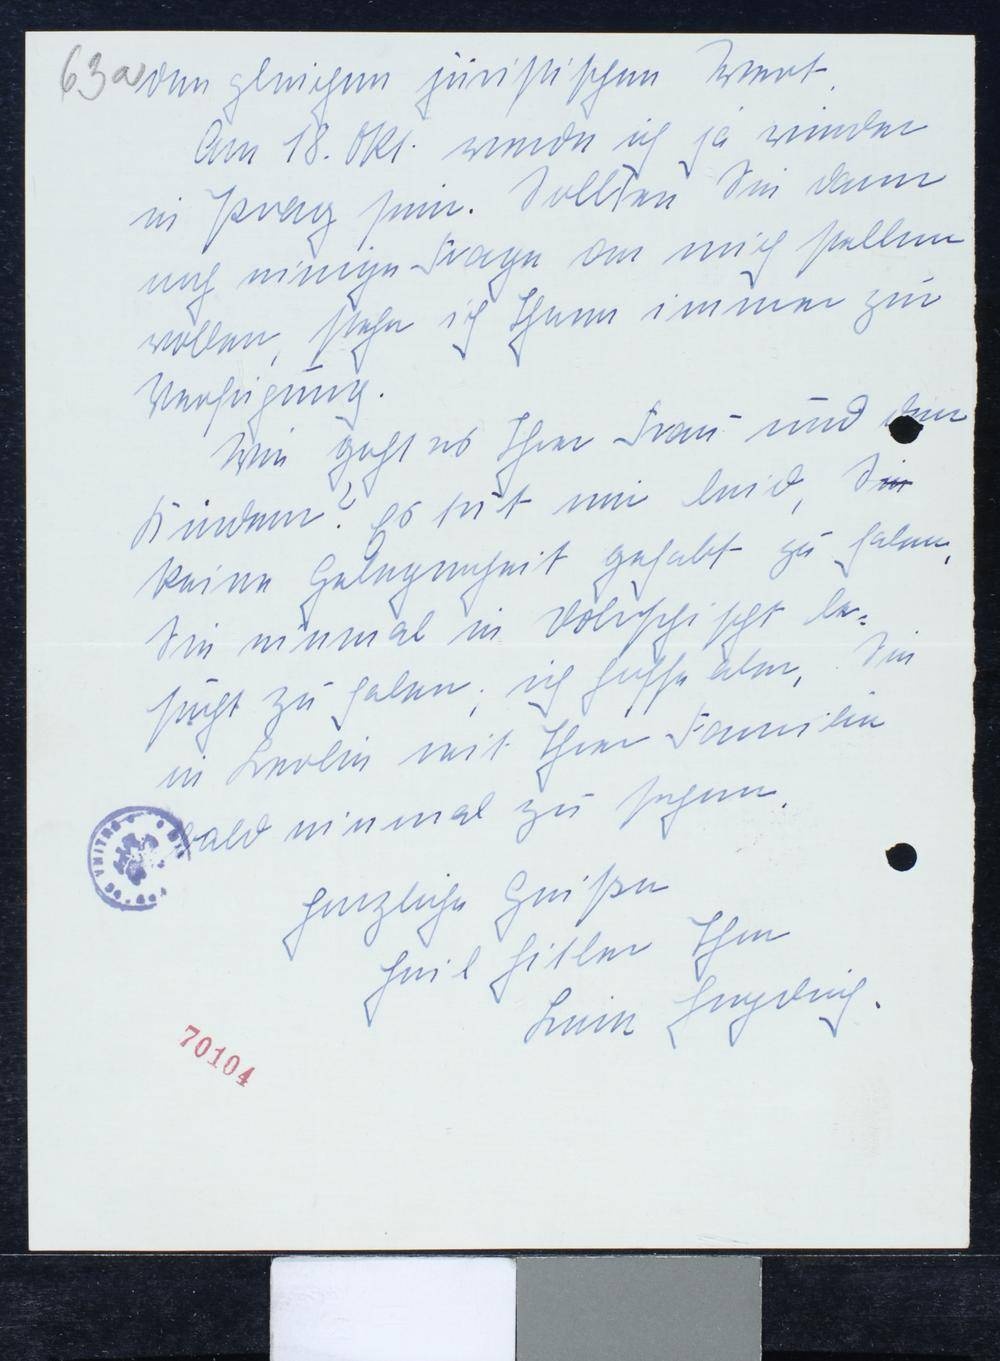 63a
den gleichen juristischen Wert.
Am 18. Okt. werde ich ja wieder
in Prag sein. Sollten Sie dann
noch einige Frage an mich stellen
wollen, stehe ich Ihnen immer zur
Verfügung.
Wie geht es Ihrer Frau und den
Kindern? Es tut mir leid, Sie
keine Gelegenheit gehabt zu haben,
Sie einmal in
sucht zu haben; ich hoffe aber, Sie
in Berlin mit Ihrer Familie
bald einmal zu sehen.
Herzliche Grüße
Heil Hitler Ihre
Lina Heydrich.
70104